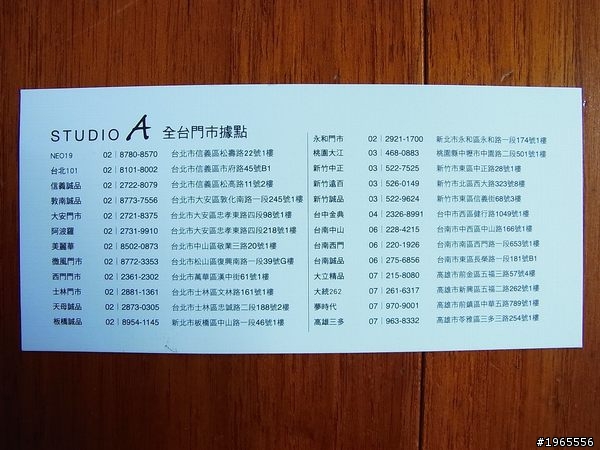 STUDIO A 全台門市據點
NEO19 02 8780-8570 台北市信義區松壽路22號1樓
台北101 02 8101-8002 台北市信義區市府路45號B1
信義誠品 02 2722-8079 台北市信義區松高路11號2樓
敦南誠品 02 8773-7556 台北市大安區敦化南路一段245號1樓
大安門市 02 2721-8375 台北市大安區忠孝東路四段98號1樓
阿波羅 02 2731-9910 台北市大安區忠孝東路四段218號1樓
美麗華 02 8502-0873 台北市中山區敬業三路20號1樓
微風門市 02 8772-3353 台北市松山區復興南路一段39號G樓
西門門市 02 2361-2302 台北市萬華區漢中街61號1樓
士林門市 02 2881-1361 台北市士林區文林路161號1樓
天母誠品 02 2873-0305 台北市士林區忠誠路二段188號2樓
板橋誠品 02 8954-1145 新北市板橋區中山路一段46號1樓
永和門市 02 2921-1700 新北市永和區永和路一段174號1樓
桃園大江 03 468-0883 桃園縣中壢市中園路二段501號1樓
新竹中正 03 522-7525 新竹市東區中正路28號1樓
新竹遠百 03 526-0149 新竹市北區西大路323號8樓
新竹誠品 03 522-9624 新竹市東區信義街68號3樓
台中金典 04 2326-8991 台中市西區健行路1049號1樓
台南中山 06 228-4215 台南市中西區中山路166號1樓
台南西門 06 220-1926 台南市南區西門路一段653號1樓
台南誠品 06 275-6856 台南市東區長榮路一段181號B1
大立精品 07 215-8080 高雄市前金區五福三路57號4樓
大統262 07 261-6317 高雄市新興區五福二路262號1樓
夢時代 07 970-9001 高雄市前鎮區中華五路789號1樓
高雄三多 07 963-8332 高雄市苓雅區三多三路254號1樓
#1965556